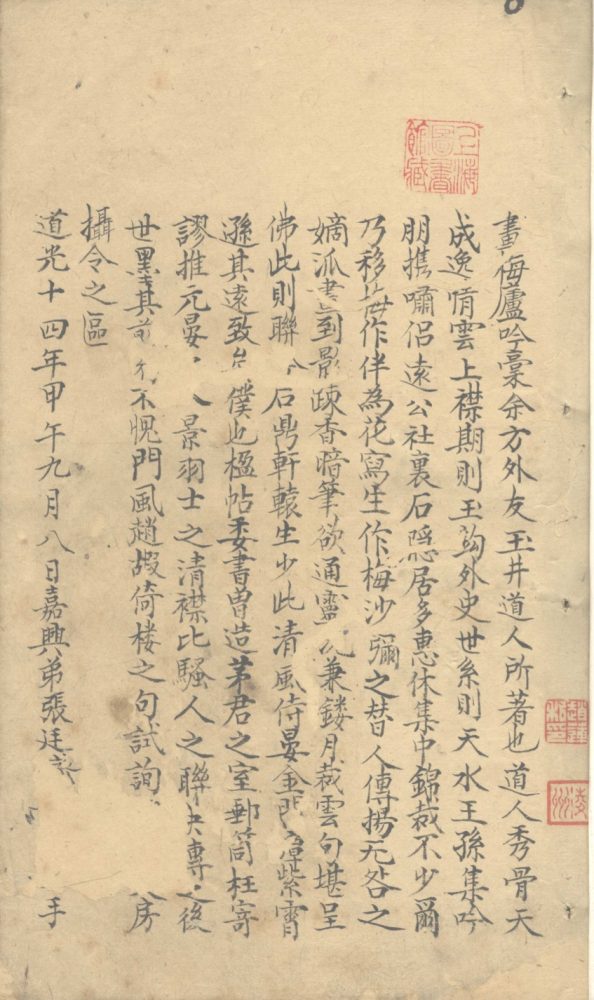 畫梅廬吟稾余方外友玉井道人所著也道人秀骨天
成逸情雲上襟期則玉局外史世系則天水王孫集吟
朋攜嘯侶遠公社裏石隱居多惠休集中錦裁不少爾
乃移梅作伴為花寫生作梅沙彌之替人傳揚无咎之
嫡派畫到影疎香暗筆欲通靈兼鏤月裁雲句堪呈
佛此則聯石鼎軒轅生少此清風侍晏金門紫霄
遜其遠致僕也楹帖委書曾造茅君之室郵筒枉寄
謬推元晏景羽士之清襟比騷人之聯專之後
世墨其不愧門風趙嘏倚樓之句試詢房
攝令之區
道光十四年甲午九月八日嘉興弟張廷手
上海圖書館藏